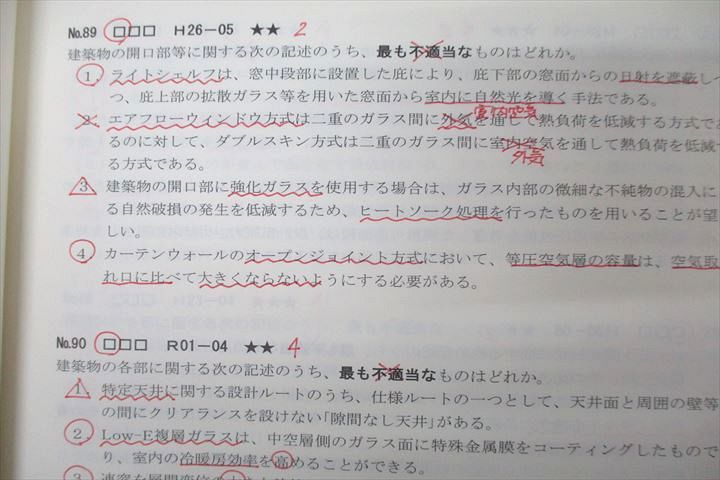 No.89 □□□ H26－05 ★★ 2
建築物の開口部等に関する次の記述のうち、最も不適当なものはどれか。
1. ライトシェルフは、窓中段部に設置した庇により、庇下部の窓面からの日射を遮蔽し
つ、庇上部の拡散ガラス等を用いた窓面から室内に自然光を導く手法である。
室内空気
2. エアフローウィンドウ方式は二重のガラス間に外気を通して熱負荷を低減する方式であ
るのに対して、ダブルスキン方式は二重のガラス間に室内空気を通して熱負荷を低減す
外気
る方式である。
3. 建築物の開口部に強化ガラスを使用する場合は、ガラス内部の微細な不純物の混入に
る自然破損の発生を低減するため、ヒートソーク処理を行ったものを用いることが望
しい。
4. カーテンウォールのオープンジョイント方式において、等圧空気層の容量は、空気取
れ口に比べて大きくならないようにする必要がある。
No.90 □□□ R01－04 ★★ 4
建築物の各部に関する次の記述のうち、最も不適当なものはどれか。
1. 特定天井に関する設計ルートのうち、仕様ルートの一つとして、天井面と周囲の壁等
の間にクリアランスを設けない「隙間なし天井」がある。
2. Low-E複層ガラスは、中空層側のガラス面に特殊金属膜をコーティングしたもので
り、室内の冷暖房効率を高めることができる。